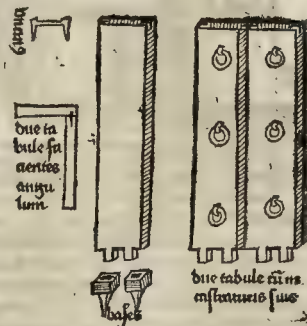 due ta
bule fa
cientes
angu
lum
bases
due tabule cũ in
castraturis suis